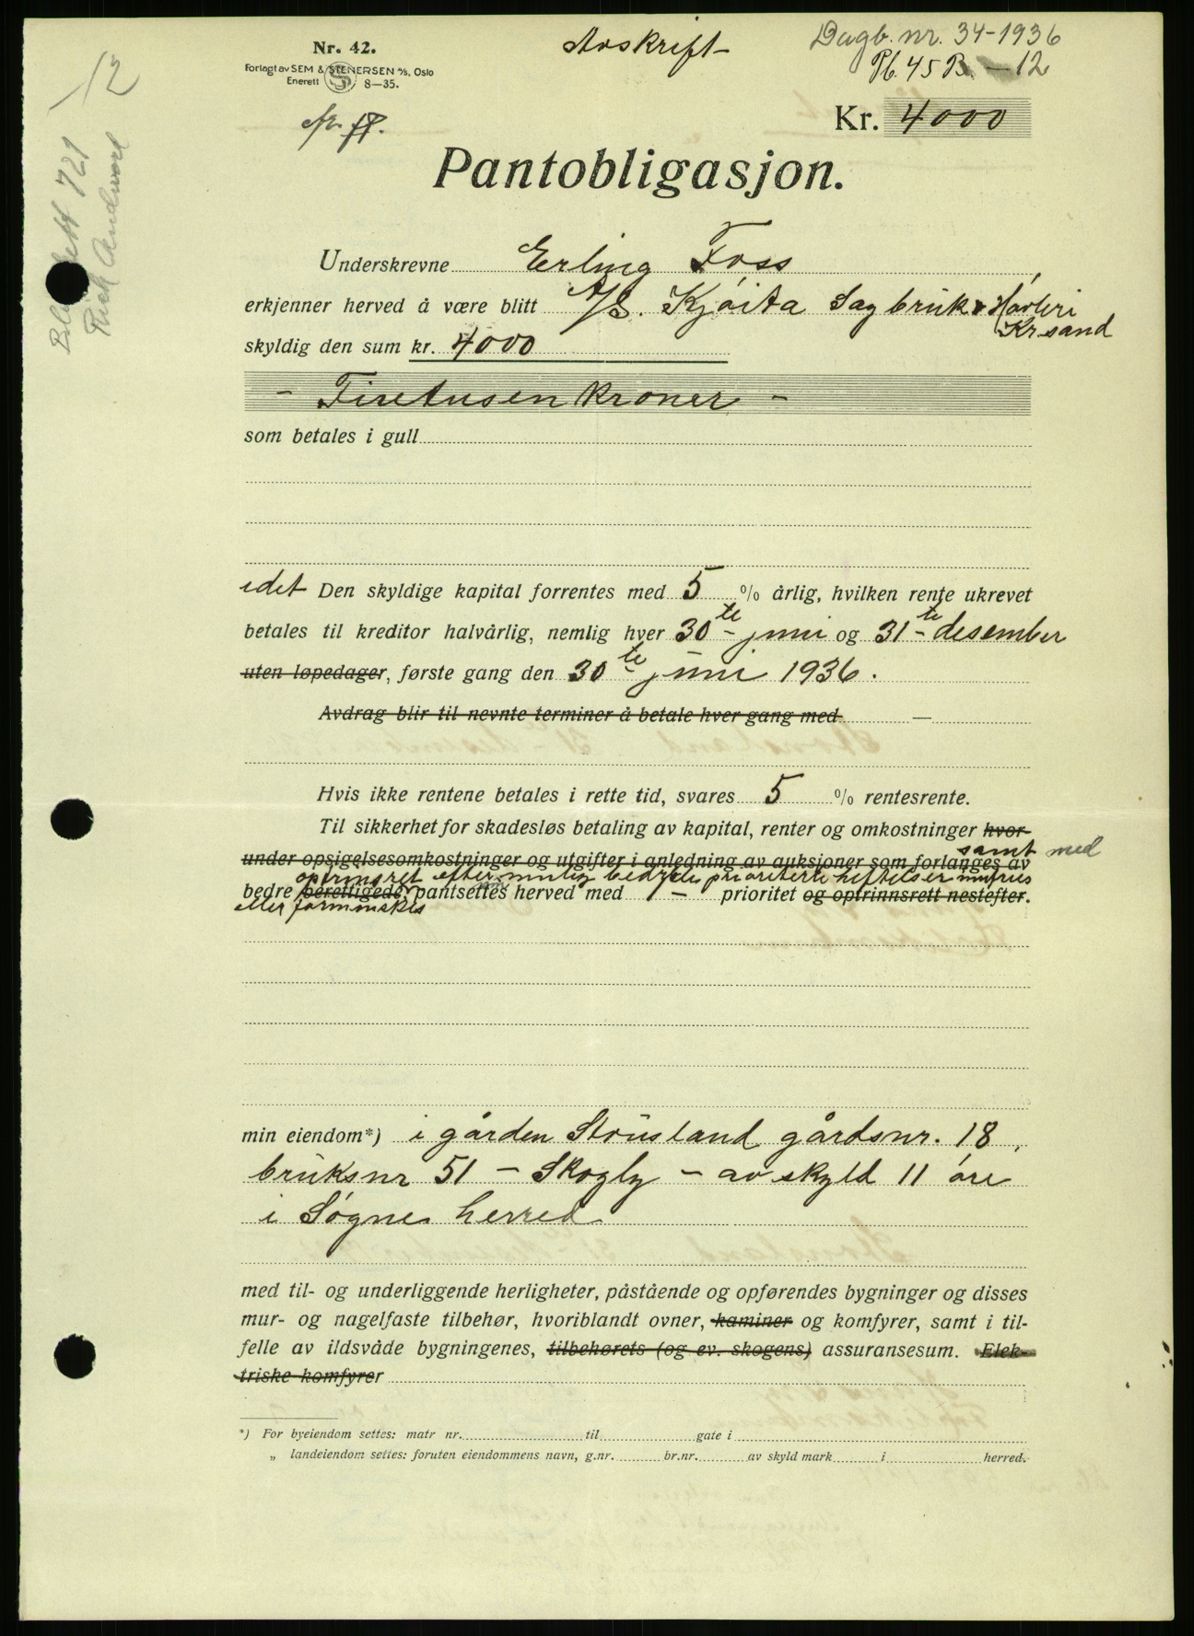 Nr. 42.
Forlagt av SEM & STENERSEN A/S, Oslo
Enerett 8—35.
Avskrift
Dagb. nr. 34-1936
Pb. 45 B. — 12
12
Kr. 4000
Pantobligasjon.
Underskrevne Erling Foss
erkjenner herved å være blitt A/S. Kjóita Sagbruk & Høvleri
Kr.sand
skyldig den sum kr. 4000
- Firetusen kroner -
som betales i gull
idet Den skyldige kapital forrentes med 5 % årlig, hvilken rente ukrevet
betales til kreditor halvårlig, nemlig hver 30te juni og 31te desember
uten løpedager, første gang den 30te juni 1936.
Avdrag blir til nevnte terminer å betale hver gang med —
Hvis ikke rentene betales i rette tid, svares 5 % rentesrente.
Til sikkerhet for skadesløs betaling av kapital, renter og omkostninger hvor-
samt med
under opsigelsesomkostninger og utgifter i anledning av auksjoner som forlanges av
oprinsret efter mulig bedre prioriterte heftelser innfries
bedre berettigede, pantsettes herved med 1 — prioritet og optrinnsrett nestefter.
eller forminskes
min eiendom*) i gården Stóusland gårdsnr. 18,
bruksnr 51 - Skogly - av skyld 11 óre
i Søgne herred
med til- og underliggende herligheter, påstående og opførendes bygninger og disses
mur- og nagelfaste tilbehør, hvoriblandt ovner, kaminer og komfyrer, samt i til-
felle av ildsvåde bygningenes, tilbehørets (og ev. skogens) assuransesum. Elek-
triske komfyrer
*) For byeiendom settes: matr nr. til gate i
„ landeiendom settes: foruten eiendommens navn, g.nr. br.nr. av skyld mark i herred.